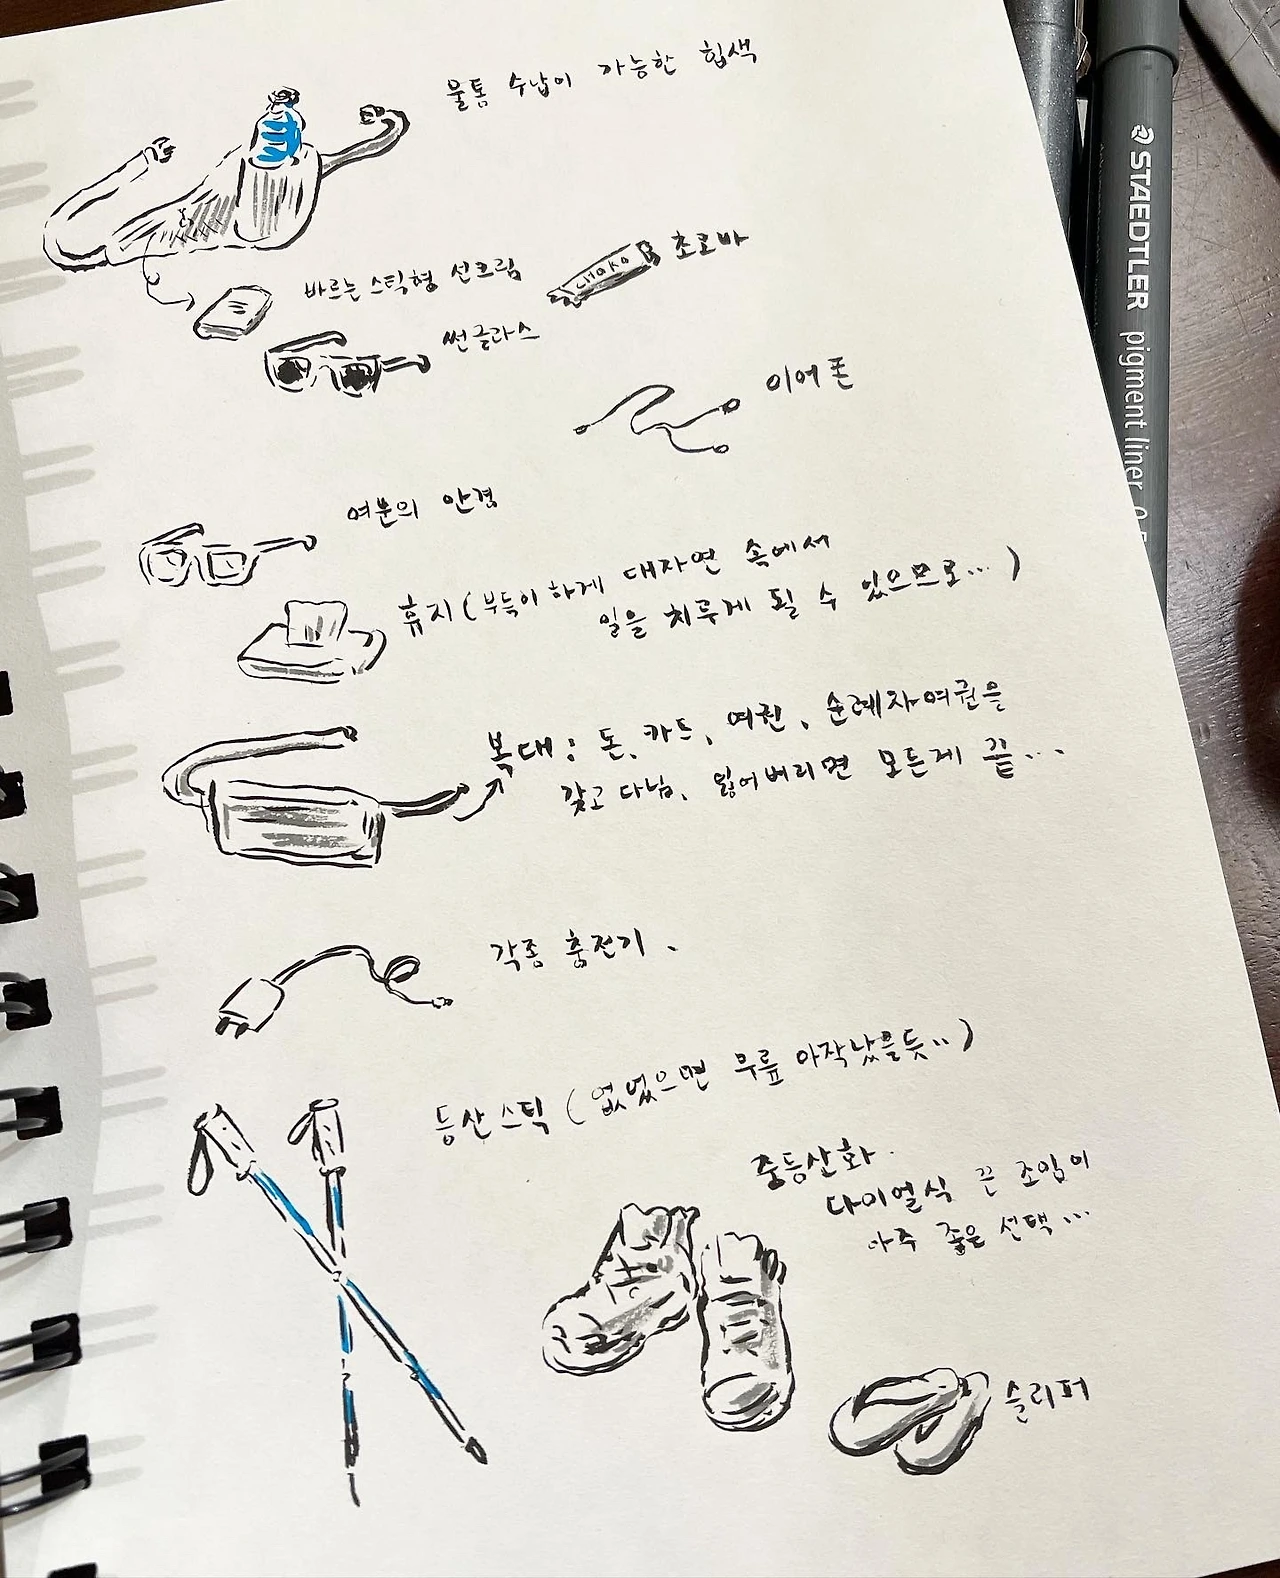 물통 수납이 가능한 힙색
바르는 스틱형 선크림
CHOKO
초코바
썬글라스
이어폰
여분의 안경
휴지 (부득이하게 대자연 속에서
일을 치루게 될 수 있으므로...)
복대 : 돈, 카드, 여권, 순례자여권을
갖고 다님. 잃어버리면 모든게 끝...
각종 충전기.
등산스틱 (없었으면 무릎 아작났을듯..)
중등산화.
다이얼식 끈 조임이
아주 좋은 선택...
슬리퍼
STAEDTLER pigment liner